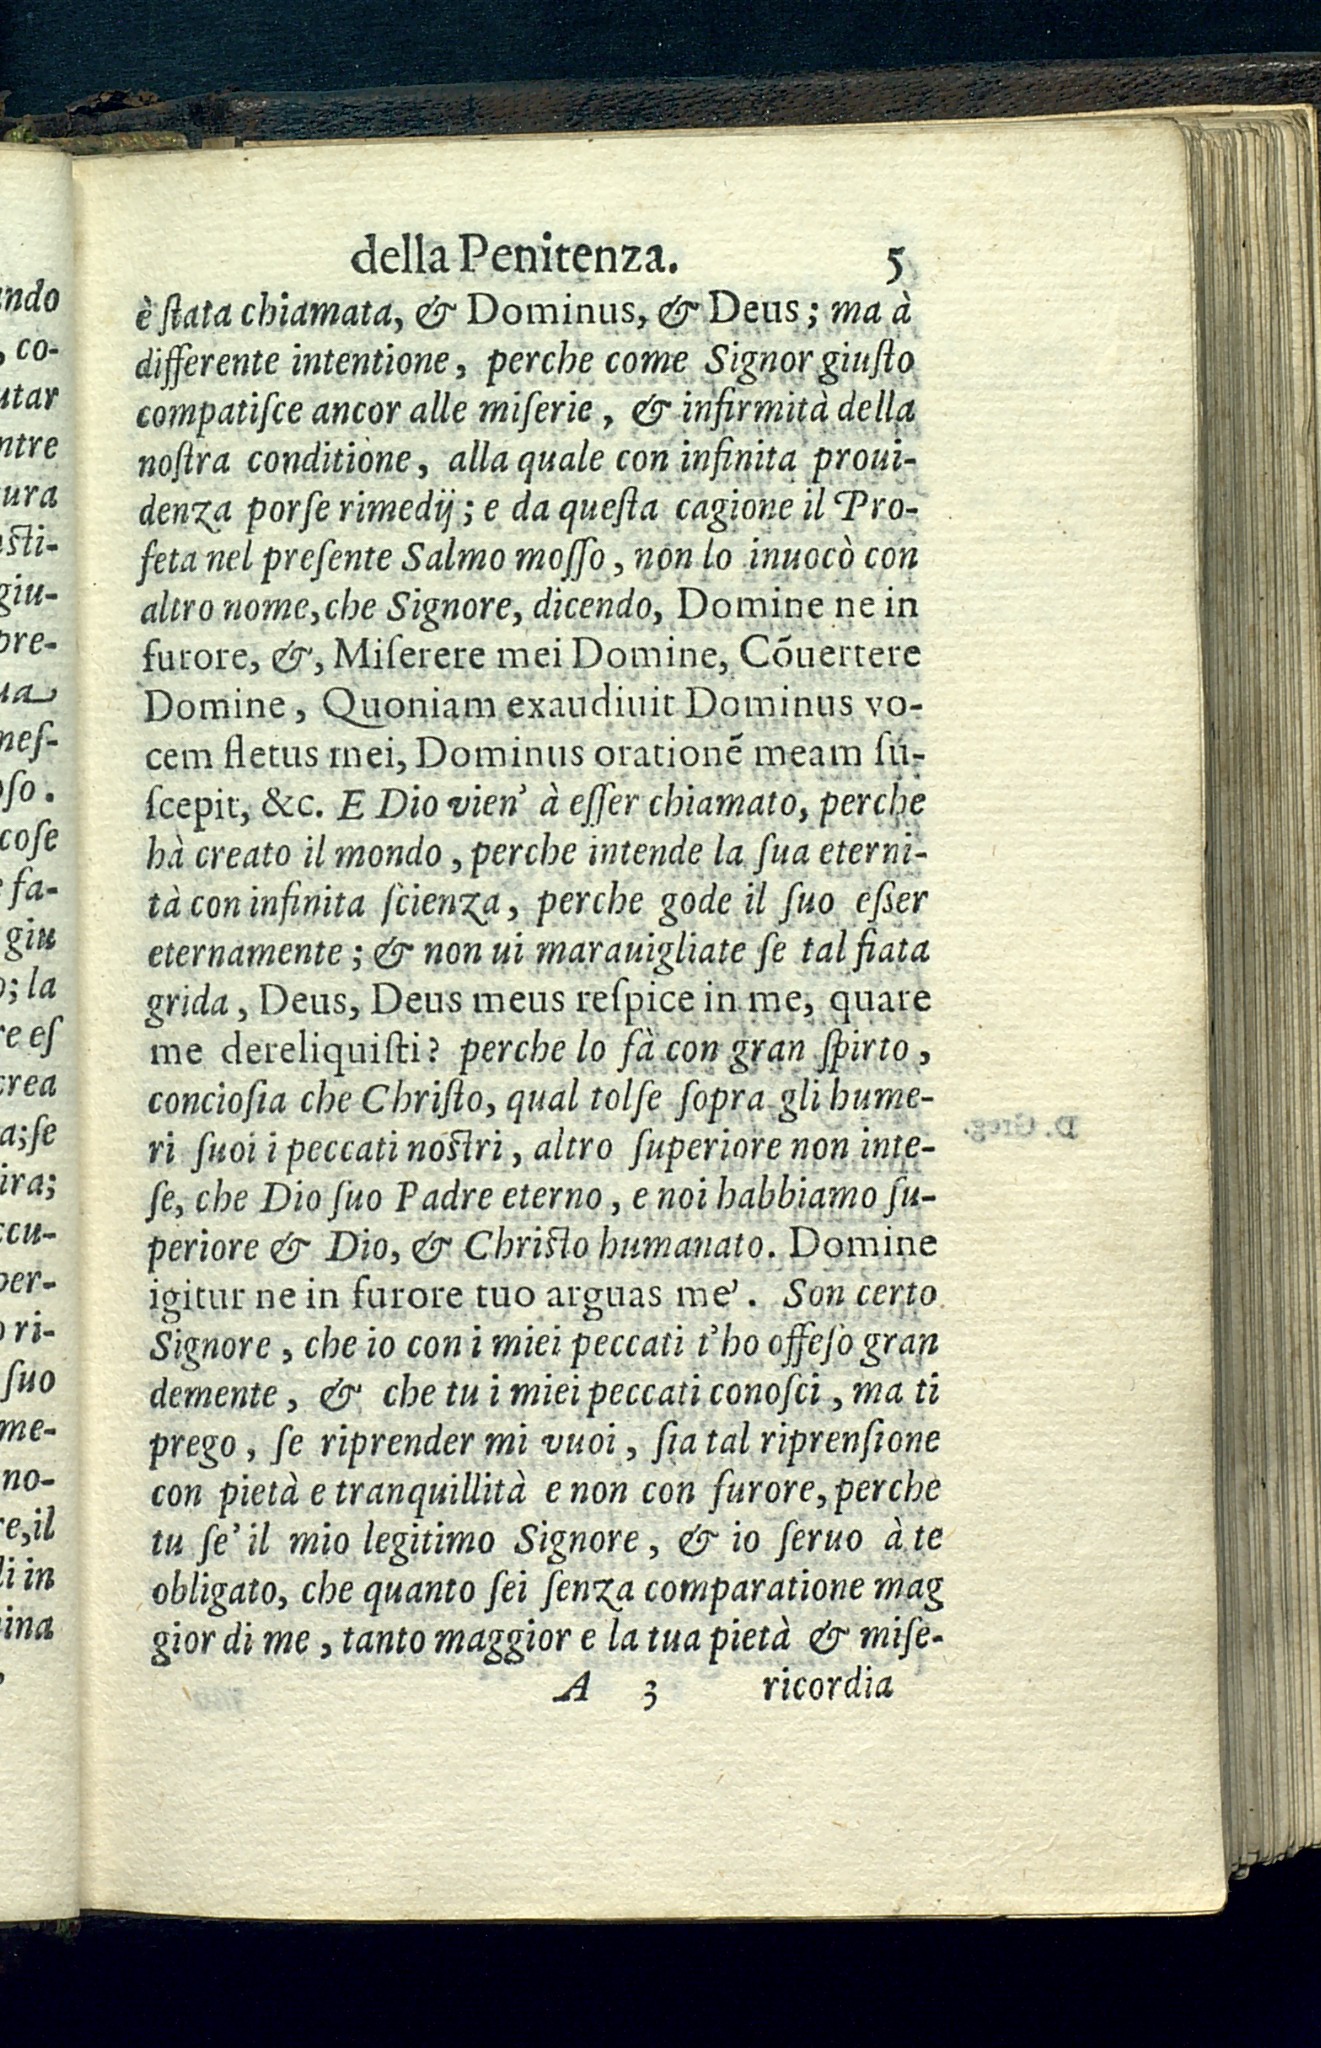 della Penitenza. 5
è ſtata chiamata, & Dominus, & Deus; ma à
differente intentione, perche come Signor giuſto
compatiſce ancor alle miſerie, & infirmità della
noſtra conditione, alla quale con infinita proui-
denza porſe rimedij; e da queſta cagione il Pro-
feta nel preſente Salmo moſſo, non lo inuocò con
altro nome, che Signore, dicendo, Domine ne in
furore, &, Miſerere mei Domine, Cōuertere
Domine, Quoniam exaudiuit Dominus vo-
cem fletus mei, Dominus orationē meam ſu-
ſcepit, &c. E Dio vien' à eſſer chiamato, perche
hà creato il mondo, perche intende la ſua eterni-
tà con infinita ſcienza, perche gode il ſuo eßer
eternamente; & non ui marauigliate ſe tal fiata
grida, Deus, Deus meus reſpice in me, quare
me dereliquiſti? perche lo fà con gran ſpirto,
concioſia che Chriſto, qual tolſe ſopra gli hume-
ri ſuoi i peccati noſtri, altro ſuperiore non inte-
ſe, che Dio ſuo Padre eterno, e noi habbiamo ſu-
periore & Dio, & Chriſto humanato. Domine
igitur ne in furore tuo arguas me'. Son certo
Signore, che io con i miei peccati t'ho offeſo gran
demente, & che tu i miei peccati conoſci, ma ti
prego, ſe riprender mi vuoi, ſia tal riprenſione
con pietà e tranquillità e non con furore, perche
tu ſe' il mio legitimo Signore, & io ſeruo à te
obligato, che quanto ſei ſenza comparatione mag
gior di me, tanto maggior e la tua pietà & miſe-
A 3 ricordia
ando
, co-
utar
ntre
ura
ſti-
giu-
pre-
ua
neſ-
oſo.
coſe
fa-
giu
o; la
re eſ
crea
a; ſe
ira;
ccu-
per-
o ri-
ſuo
me-
no-
re, il
li in
ina